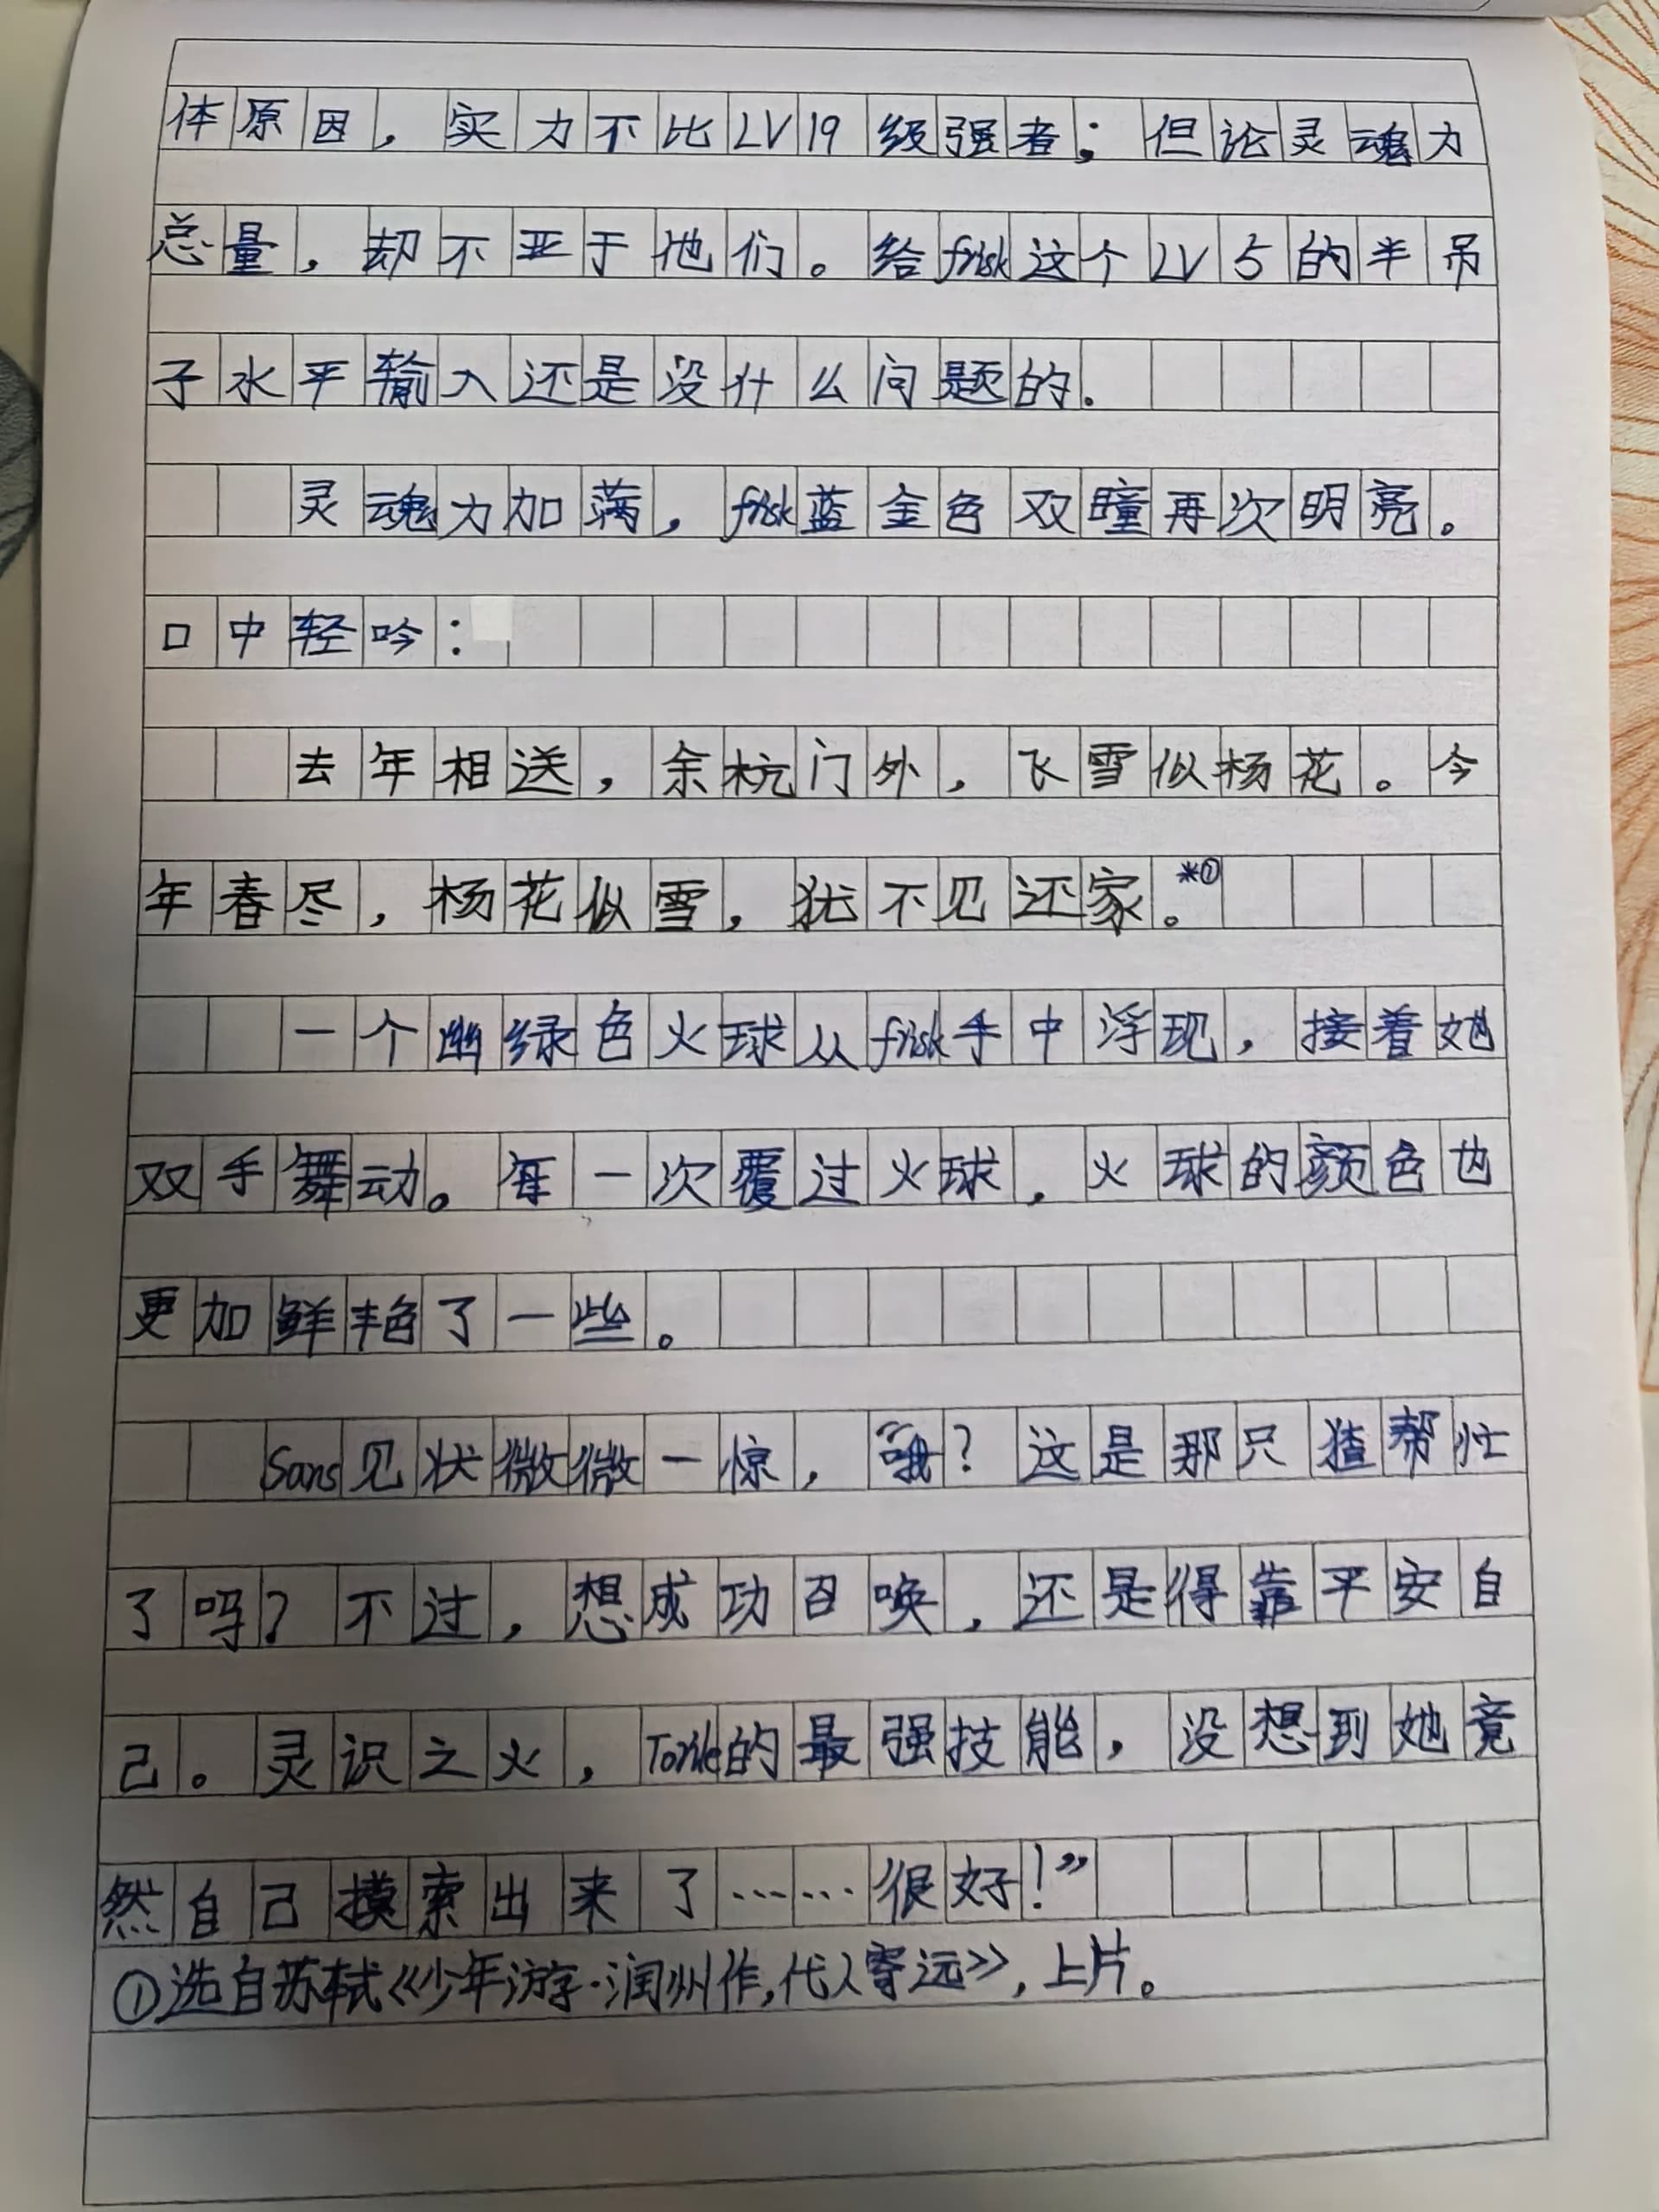 体原因，实力不比LV19级强者；但论灵魂力
总量，却不亚于他们。给frisk这个LV5的半吊
子水平输入还是没什么问题的.
灵魂力加满，frisk蓝金色双瞳再次明亮。
口中轻吟：
去年相送，余杭门外，飞雪似杨花。今
年春尽，杨花似雪，犹不见还家。*①
一个幽绿色火球从frisk手中浮现，接着她
双手舞动。每一次覆过火球，火球的颜色也
更加鲜艳了一些。
Sans见状微微一惊，“哦？这是那只猹帮忙
了吗？不过，想成功召唤，还是得靠平安自
己。灵识之火，Toriel的最强技能，没想到她竟
然自己摸索出来了……很好！”
①选自苏轼《少年游·润州作,代人寄远》，上片。